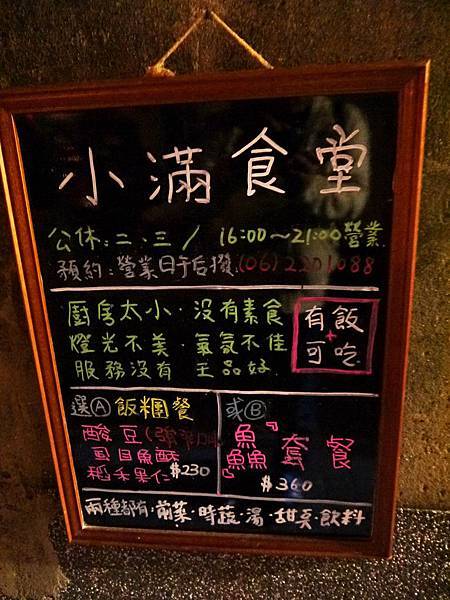 小滿食堂
公休:二、三 / 16:00~21:00營業
預約:營業日午后撥(06)2201088
廚房太小·沒有素食
燈光不美·氣氛不佳
服務沒有 王品好
有飯
+
可吃
選Ⓐ飯糰餐
酸豆
虱目魚酥
稻禾果仁 $230
或Ⓑ
魚『
鱻 套餐
』
$360
兩種都有,前菜·時蔬·湯·甜頁·飲料